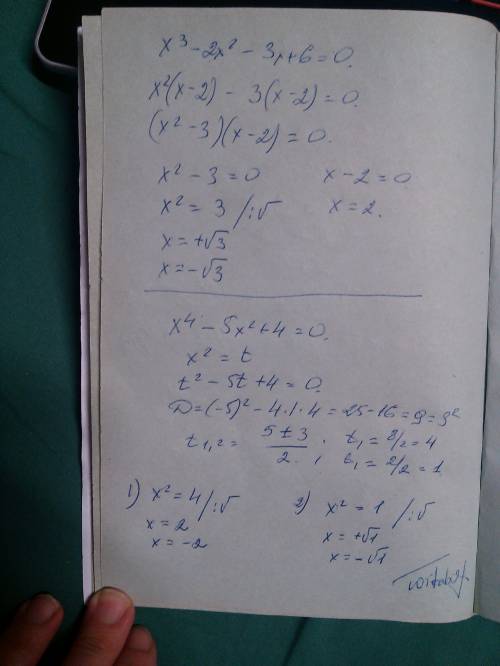 x³ - 2x² - 3x + 6 = 0.
x²(x-2) - 3(x-2) = 0.
(x² - 3)(x-2) = 0.
x² - 3 = 0 x - 2 = 0
x² = 3 /:√ x = 2.
x = +√3
x = -√3
x⁴ - 5x² + 4 = 0.
x² = t
t² - 5t + 4 = 0.
D = (-5)² - 4·1·4 = 25 - 16 = 9 = 3²
t₁,₂ = (5 ± 3)/2. , t₁ = 8/2 = 4
t₁ = 2/2 = 1
1) x² = 4 /:√ 2) x² = 1 /:√
x = 2 x = +√1
x = -2 x = -√1